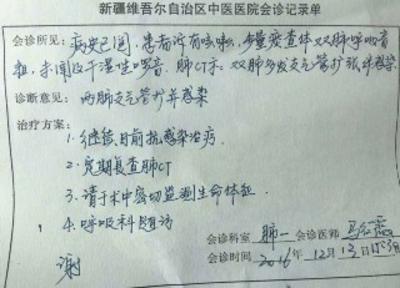 新疆维吾尔自治区中医医院会诊记录单
会诊所见：病史已阅，患者诉有咳嗽，少量痰查体双肺呼吸音
粗，未闻及干湿性啰音．肺CT示：双肺多发支气管扩张伴感染
诊断意见：两肺支气管扩并感染
治疗方案：
1.继续目前抗感染治疗
2.定期复查肺CT
3.请于术中密切监测生命体征
4.呼吸科随访
会诊科室 肺一 会诊医师
谢
会诊时间 2016年12月13日